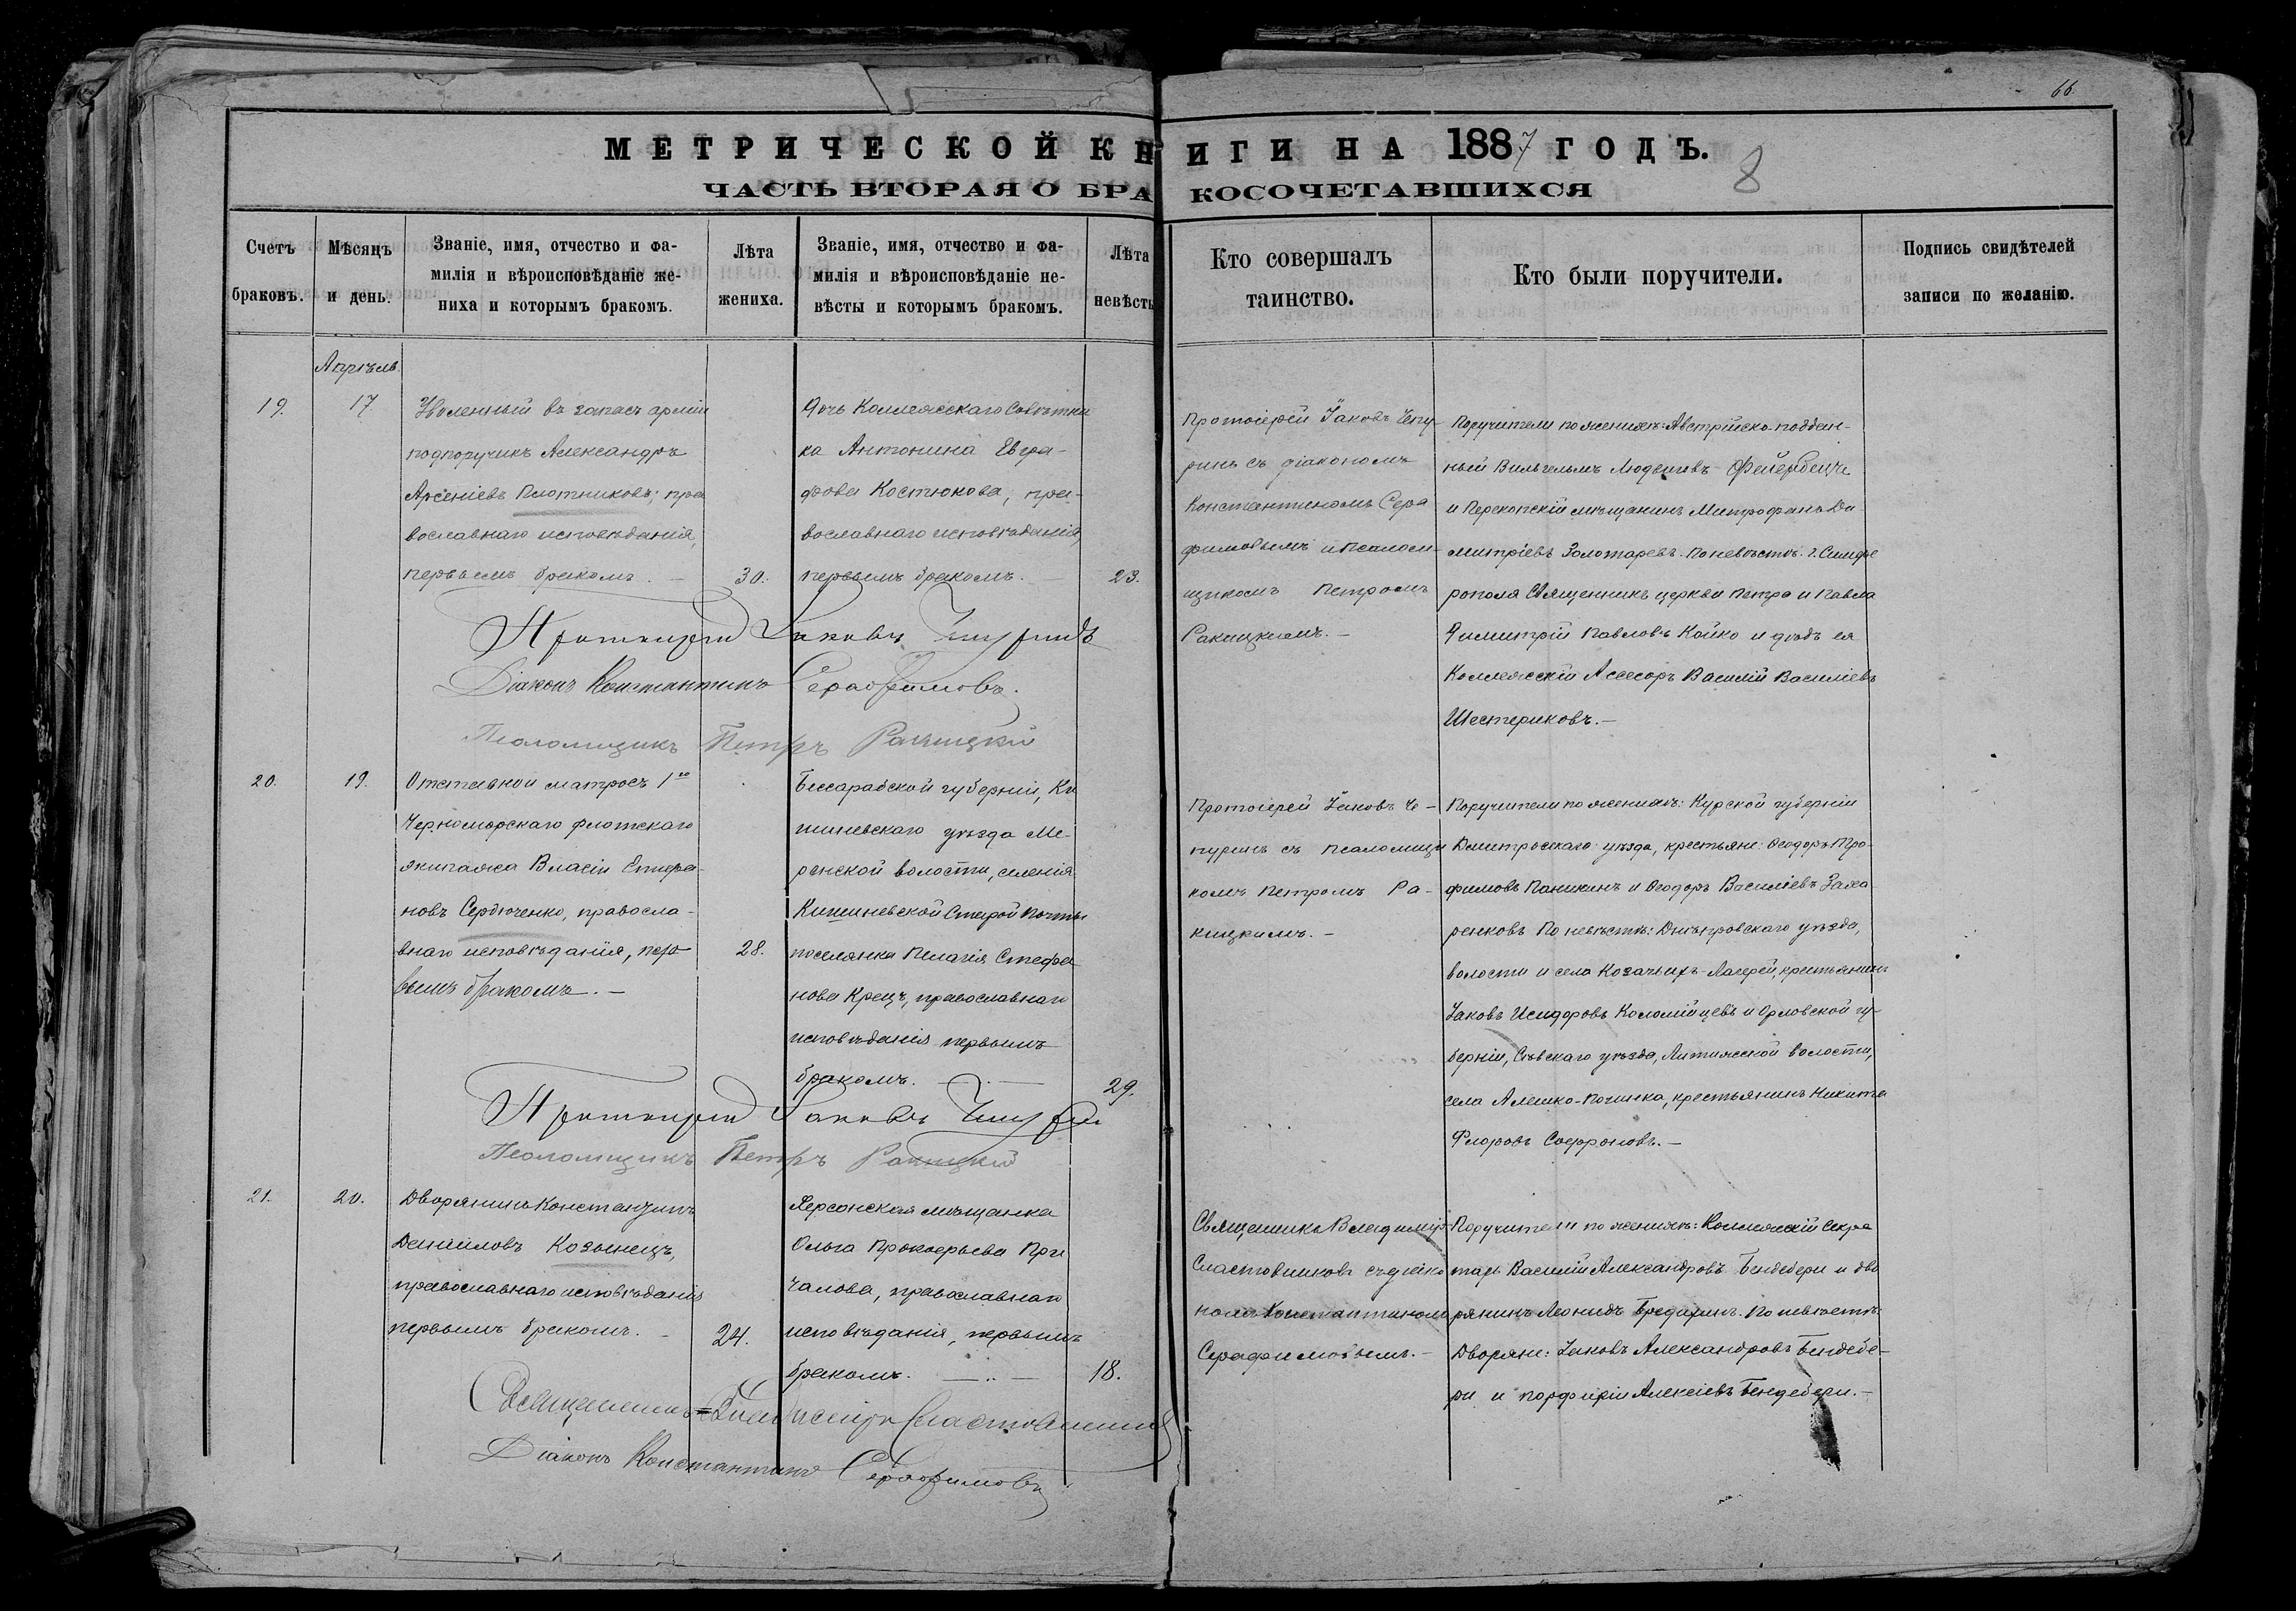 66.
МЕТРИЧЕСКОЙ КНИГИ НА 1887 ГОДЪ.
8
ЧАСТЬ ВТОРАЯ О БРАКОСОЧЕТАВШИХСЯ
Счетъ браковъ.
Мѣсяцъ и день.
Званіе, имя, отчество и фа-
милія и вѣроисповѣданіе же-
ниха и которымъ бракомъ.
Лѣта жениха.
Званіе, имя, отчество и фа-
милія и вѣроисповѣданіе не-
вѣсты и которымъ бракомъ.
Лѣта невѣсты
Кто совершалъ
таинство.
Кто были поручители.
Подпись свидѣтелей
записи по желанію.
Апрѣль.
19.
17
Уволенный въ запасъ арміи
подпоручикъ Александръ
Арсеніевъ Плотниковъ; пра
вославнаго исповѣданія,
первымъ бракомъ. —
30.
Дочь Коллежскаго Совѣтни
ка Антонина Евгра-
фова Костюкова, пра-
вославнаго исповѣданія,
первымъ бракомъ.
23.
Протоіерей Іаковъ Чепу-
ринъ съ діакономъ
Константиномъ Сера
фимовымъ и псалом-
щикомъ Петромъ
Ракицкимъ. —
Поручители по женихѣ: Австрійско-поддан-
ный Вильгельмъ Людвиговъ
и Перекопскій мѣщанинъ Митрофанъ Ди-
митріевъ Золотаревъ. По невѣстѣ: г. Симфе
рополя Священникъ церкви Петра и Павла
Димитрій Павловъ Койко и дядъ ея
Коллежскій Ассесоръ Василій Василіевъ
Шестериковъ. —
Протоіерей Іаковъ Чепуринъ
Діаконъ Константинъ Серафимовъ.
Псаломщикъ Петръ Ракицкій
20.
19.
Отставной матросъ 1го
Черноморскаго флотскаго
экипажа Власій Стефа-
новъ Сердюченко, правосла-
внаго исповѣданія, пер-
вымъ бракомъ. —
28.
Бессарабской губерніи, Ки
шиневскаго уѣзда Ме-
ренской волости, селенія
Кишиневской Старой Почты
поселянка Пелагія Стефа
нова Крецу, православнаго
исповѣданія первымъ
бракомъ. —
29.
Протоіерей Іаковъ Че-
пуринъ съ псаломщи
комъ Петромъ Ра-
кицкимъ. —
Поручители по женихѣ: Курской губерніи
Дмитровскаго уѣзда, крестьяне: Ѳеодоръ Тро-
фимовъ Паникинъ и Ѳеодоръ Василіевъ Заха
ренковъ По невѣстѣ: Днѣпровскаго уѣзда,
волости и села Козачьихъ-Лагерей, крестьянинъ
Іаковъ Исидоровъ Коломійцевъ и Орловской гу-
берніи, Сѣвскаго уѣзда, Литижской волости,
села Алешко-Починка, крестьянинъ Никита
Флоровъ Софроновъ. —
Протоіерей Іаковъ Чепурин
Псаломщикъ Петръ Ракицкій
21.
20.
Дворянинъ Константинъ
Даниловъ Козынецъ,
православнаго исповѣданія
первымъ бракомъ. —
24.
Херсонская мѣщанка
Ольга Прокофьева При
чалова, православнаго
исповѣданія, первымъ
бракомъ. —
18.
Священникъ Владиміръ
Сластовниковъ съ діако
номъ Константиномъ
Серафимовымъ. —
Поручители по женихѣ: Коллежскій Секре
тарь Василій Александровъ Бендебери и дво
рянинъ Леонидъ Бредаринъ. По невѣстѣ:
Дворяне: Іаковъ Александровъ Бендебе-
ри и Порфирій Алексіевъ Бендебери. —
Священникъ Владиміръ Сластовниковъ
Діаконъ Константинъ Серафимовъ